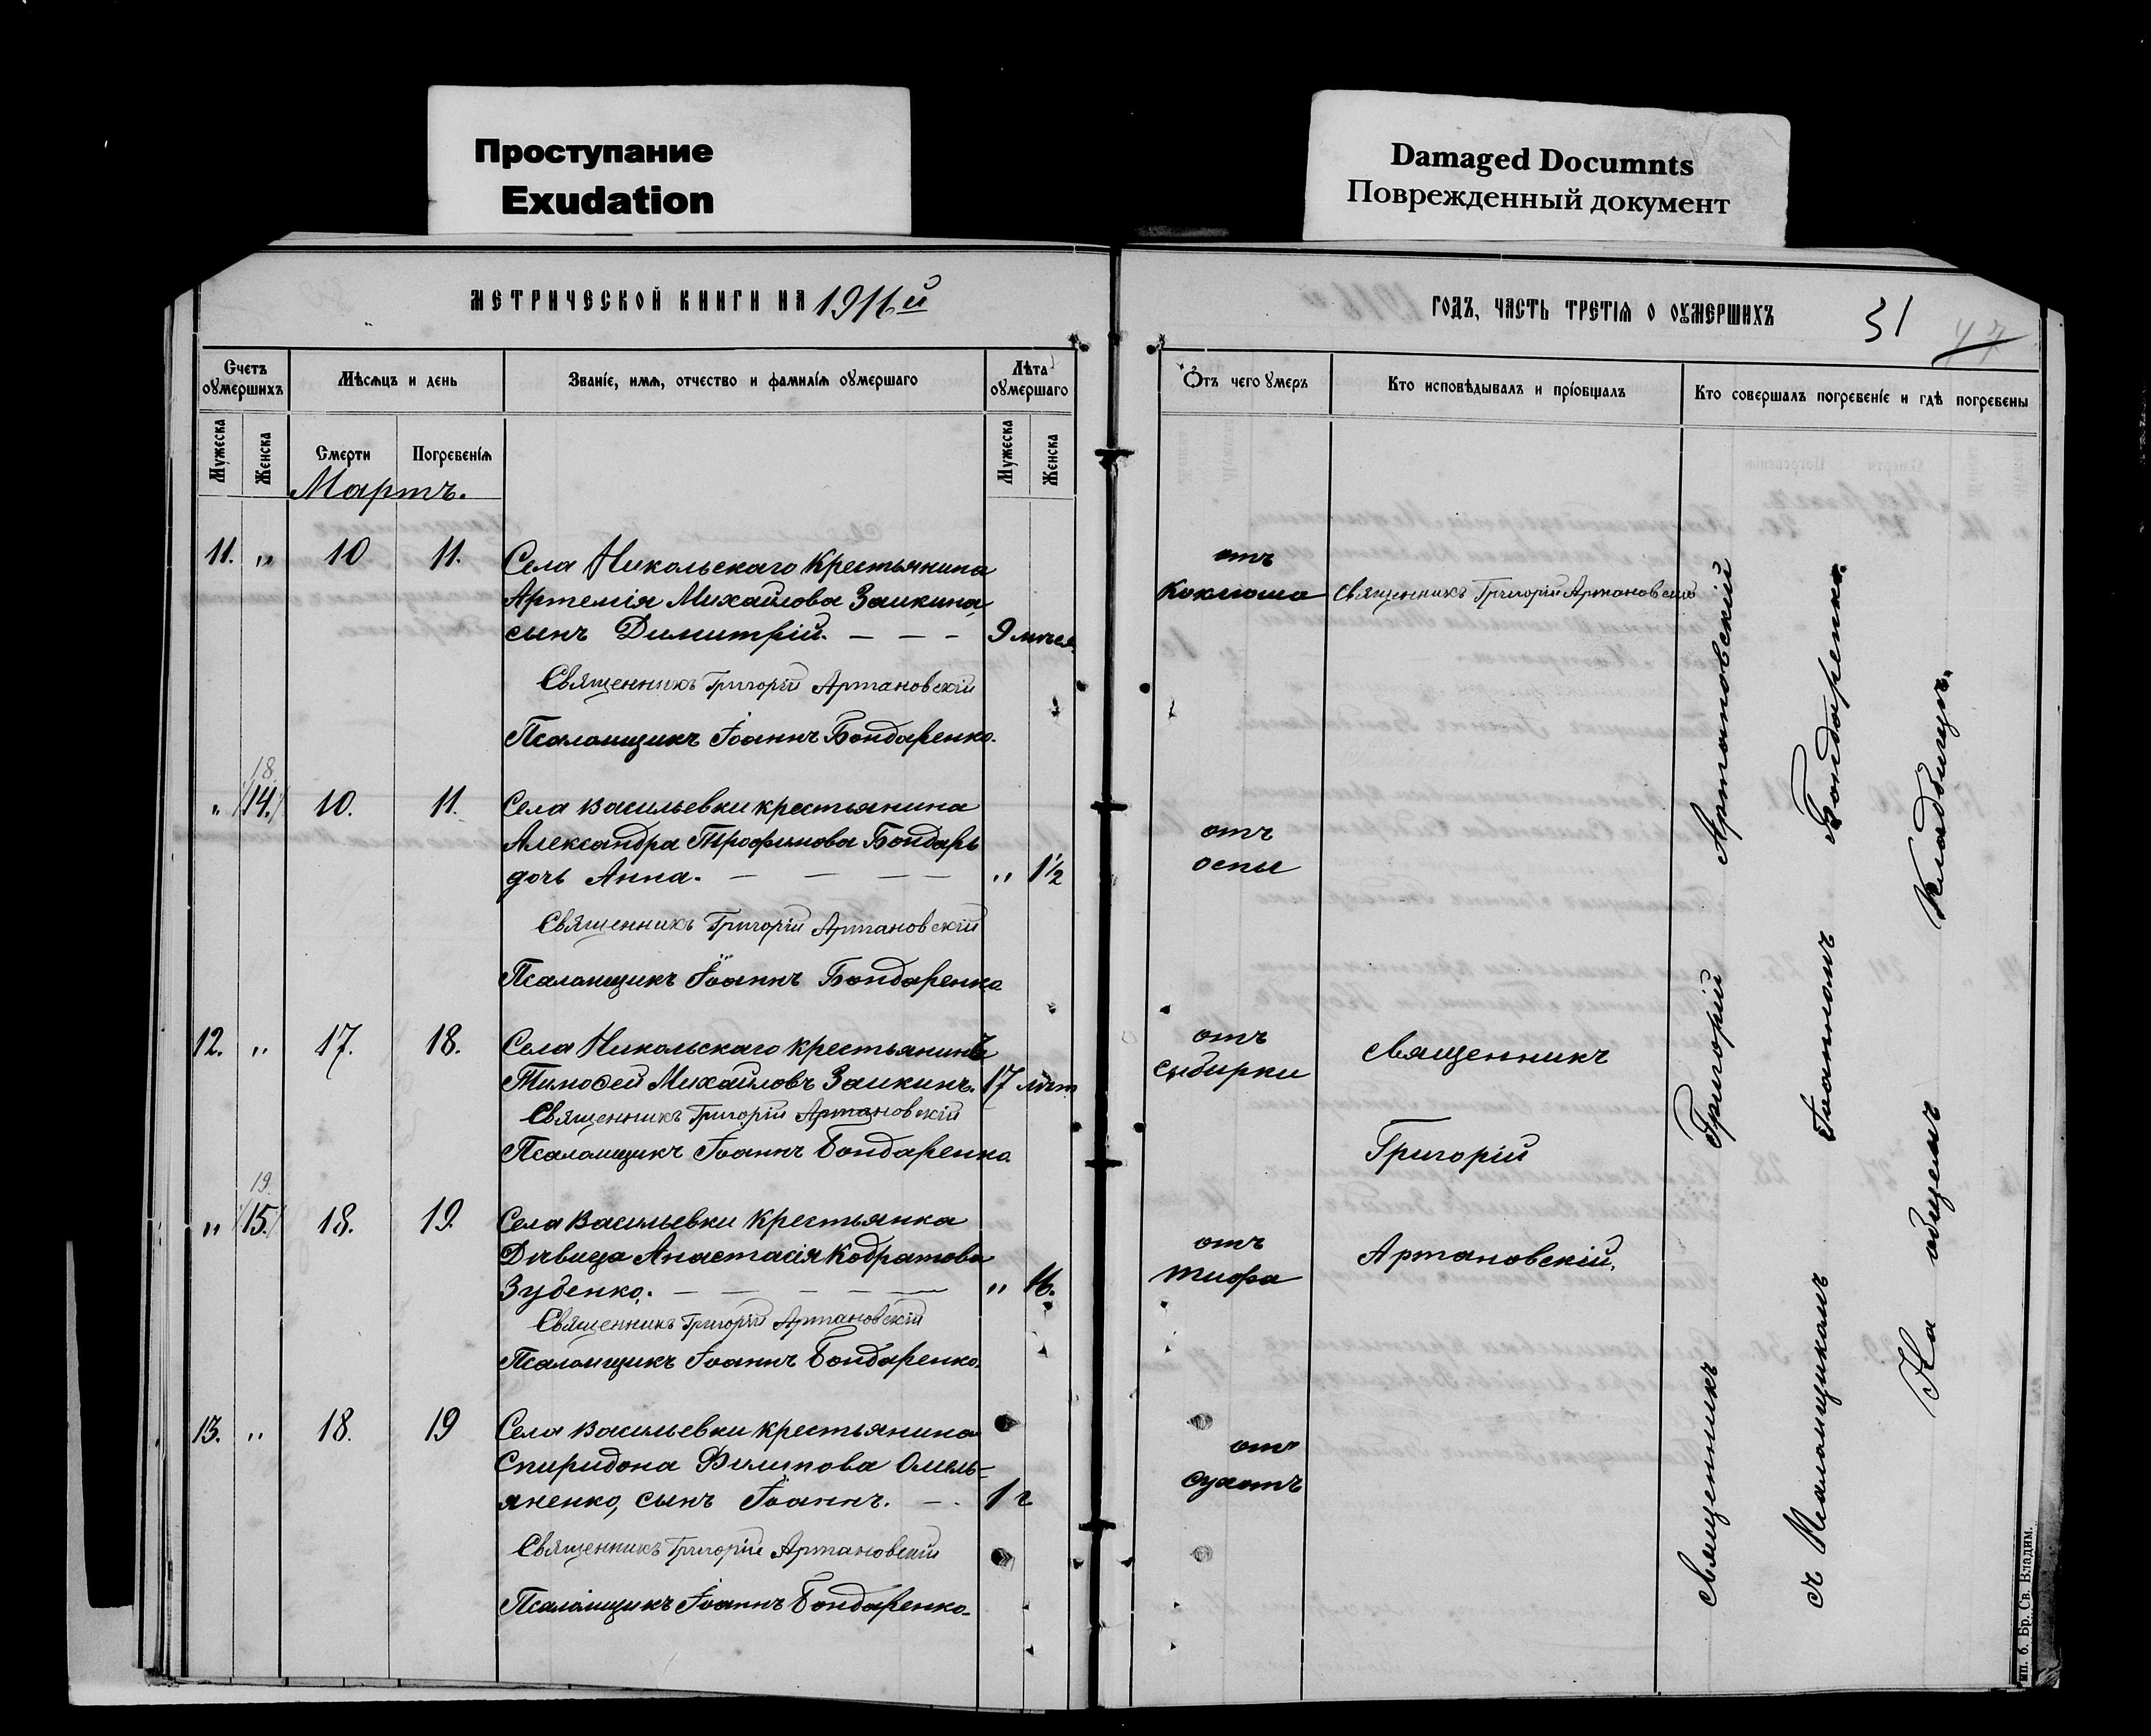 Проступание
Exudation
Damaged Documnts
Поврежденный документ
МЕТРИЧЕСКОЙ КНИГИ НА 1911й
Счетъ оумершихъ
Мѣсяцъ и день
Званіе, имя, отчество и фамилія оумершаго
Лѣта оумершаго
Мужеска
Женска
Смерти
Погребенія
Мужеска
Женска
Мартъ.
11. „ 10 11. Села Никольскаго крестьянина
Артемія Михайлова Заикина,
сынъ Димитрій. — — — 9 мѣся.
Священникъ Григорій Артановскій
Псаломщикъ Іоаннъ Бондаренко.
18.
„ /14./ 10. 11. Села Васильевки крестьянина
Александра Трофимова Бондарь
дочь Анна. — — — — „ 1½
Священникъ Григорій Артановскій
Псаломщикъ Іоаннъ Бондаренко
12. „ 17. 18. Села Никольскаго крестьянинъ
Тимофей Михайловъ Заикинъ. 17 лѣт
Священникъ Григорій Артановскій
Псаломщикъ Іоаннъ Бондаренко.
19.
„ /15./ 18. 19. Села Васильевки крестьянка
Дѣвица Анастасія Кодратова
Зубенко. — — — — — „ 16.
Священникъ Григорій Артановскій
Псаломщикъ Іоаннъ Бондаренко.
13. „ 18. 19 Села Васильевки крестьянина
Спиридона Филипова Омель-
яненко, сынъ Іоаннъ. — . 1 г
Священникъ Григорій Артановскій
Псаломщикъ Іоаннъ Бондаренко.
ГОДЪ, ЧАСТЬ ТРЕТІЯ О ОУМЕРШИХЪ
31 47
Отъ чего умеръ
Кто исповѣдывалъ и пріобщалъ
Кто совершалъ погребеніе и гдѣ погребены
отъ
коклюша
Священникъ Григорій Артановскій
отъ
оспы
отъ
сибирки
священникъ
Григорій
отъ
тифа
Артановскій.
отъ
сухотъ
Священникъ Григорій Артановскій
съ Псаломщикомъ Іоанномъ Бондаренко.
На общемъ кладбищѣ.
тип. б. Бр. Св. Владим.